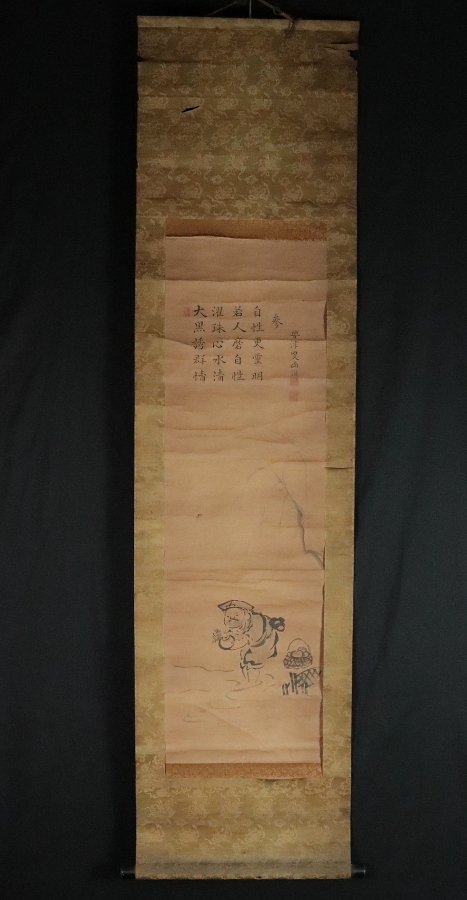 大黒誘群情
濯珠心水清
若人磨自性
自性更靈明
参
叟画